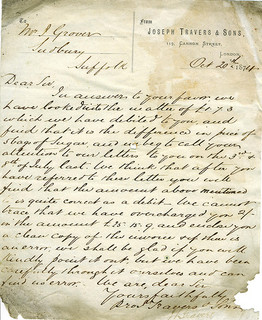 To
Mr J. Grover
Sudbury
Suffolk
From
JOSEPH TRAVERS & SONS,
119, CANNON STREET,
LONDON,
Oct 20th 1874
Dear Sir,
In answer to your favor we
have looked into the matter of £1.7.3
which we have debited to you, and
find that it is the difference in price of
5 bags of Sugar, and we beg to call your
attention to our letters to you on the 3rd &
9th of July last. We think that after you
have referred to these letters you will
find that the amount above mentioned
is quite correct as a debit. We cannot
trace that we have overcharged you 2/-
in the amount £5.15.9, and enclose you
a clear copy of the invoice & if there is
an error we shall be glad if you will
kindly point it out, but we have been
carefully through it ourselves and can
find no error. We are, dear Sir
Yours faithfully
Travers & Sons